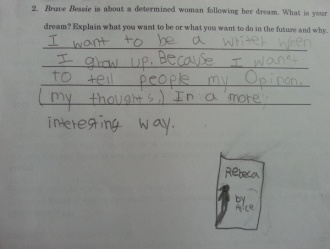 2. Brave Bessie is about a determined woman following her dream. What is your
dream? Explain what you want to be or what you want to do in the future and why.
I want to be a writer when
I grow up. Because I want
to tell people my Opinon.
(my thoughts.) In a more
interesting way.
Rebeca
by
Alice